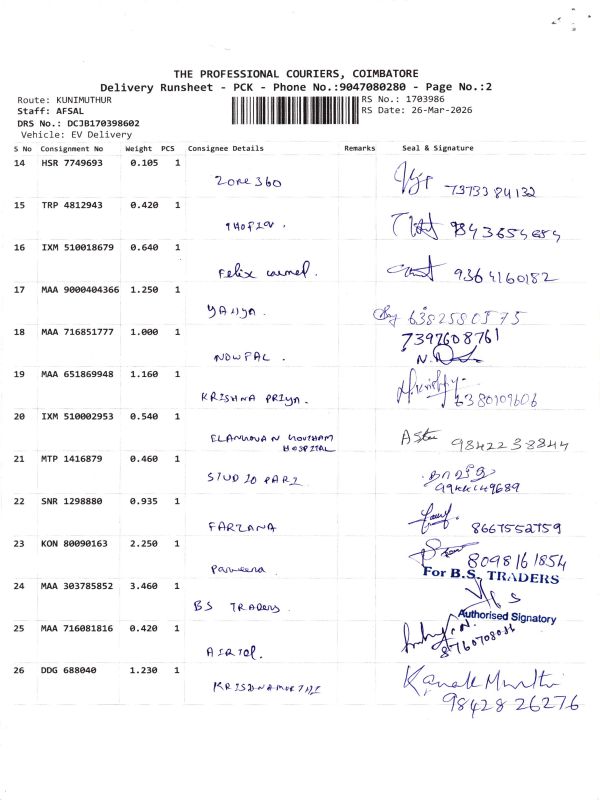 THE PROFESSIONAL COURIERS, COIMBATORE
Delivery Runsheet - PCK - Phone No.:9047080280 - Page No.:2
Route: KUNIMUTHUR RS No.: 1703986
Staff: AFSAL RS Date: 26-Mar-2026
DRS No.: DCJB170398602
Vehicle: EV Delivery
S No Consignment No Weight PCS Consignee Details Remarks Seal & Signature
14 HSR 7749693 0.105 1
Zone 360 7373384132
15 TRP 4812943 0.420 1
9843654684
16 IXM 510018679 0.640 1
Felix carmel. 9364160182
17 MAA 9000404366 1.250 1
YAHYA. 6382580575
18 MAA 716851777 1.000 1 7397608761
NOWFAL.
19 MAA 651869948 1.160 1
KRISHNA PRIYA. 6380109606
20 IXM 510002953 0.540 1
ELANGOVAN GOUTHAM
HOSPITAL 9842238844
21 MTP 1416879 0.460 1
STUDIO PARI
22 SNR 1298880 0.935 1
FARZANA 8667552759
23 KON 80090163 2.250 1
Parveena 8098161854
For B.S. TRADERS
24 MAA 303785852 3.460 1
BS TRADERS
Authorised Signatory
25 MAA 716081816 0.420 1
AIRTEL. 8760708086
26 DDG 688040 1.230 1
KRISHNAMURTHI
98428 26276